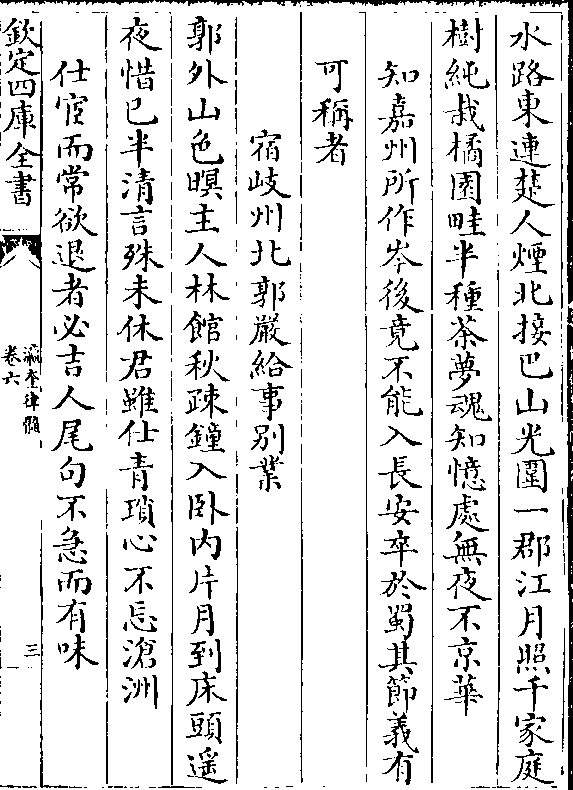 水路東連楚人煙北接巴山光圍一郡江月照千家庭
樹純栽橘園畦半種茶夢魂知憶處無夜不京華
知嘉州所作岑後竟不能入長安卒於蜀其節義有
可稱者
宿岐州北郭嚴給事別業
郭外山色暝主人林館秋疎鐘入臥內片月到床頭遥
夜惜已半清言殊未休君雖仕青瑣心不忘滄洲
仕宦而常欲退者必吉人尾句不急而有味
欽定四庫全書
瀛奎律髓
卷六
三